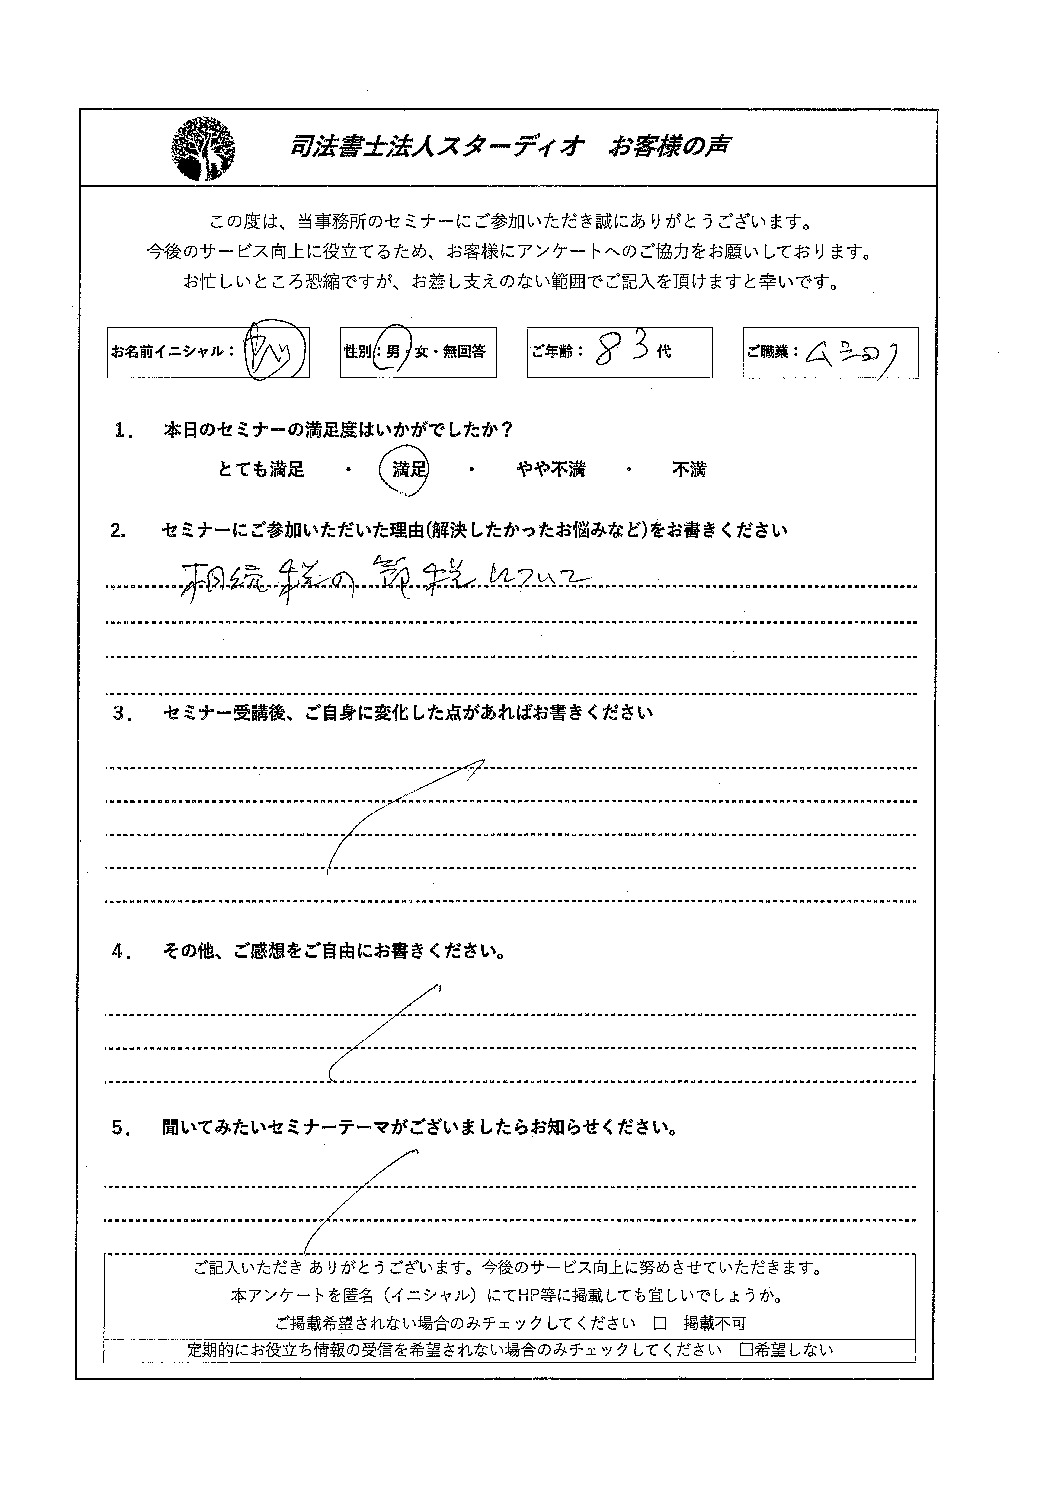 司法書士法人スターディオ お客様の声
この度は、当事務所のセミナーにご参加いただき誠にありがとうございます。
今後のサービス向上に役立てるため、お客様にアンケートへのご協力をお願いしております。
お忙しいところ恐縮ですが、お差し支えのない範囲でご記入を頂けますと幸いです。
お名前イニシャル： 性別：男/女・無回答 ご年齢：83代 ご職業：
1． 本日のセミナーの満足度はいかがでしたか？
とても満足 ・ 満足 ・ やや不満 ・ 不満
2． セミナーにご参加いただいた理由(解決したかったお悩みなど)をお書きください
相続税の節税について
3． セミナー受講後、ご自身に変化した点があればお書きください
4． その他、ご感想をご自由にお書きください。
5． 聞いてみたいセミナーテーマがございましたらお知らせください。
ご記入いただき ありがとうございます。今後のサービス向上に努めさせていただきます。
本アンケートを匿名（イニシャル）にてHP等に掲載しても宜しいでしょうか。
ご掲載希望されない場合のみチェックしてください □ 掲載不可
定期的にお役立ち情報の受信を希望されない場合のみチェックしてください □希望しない